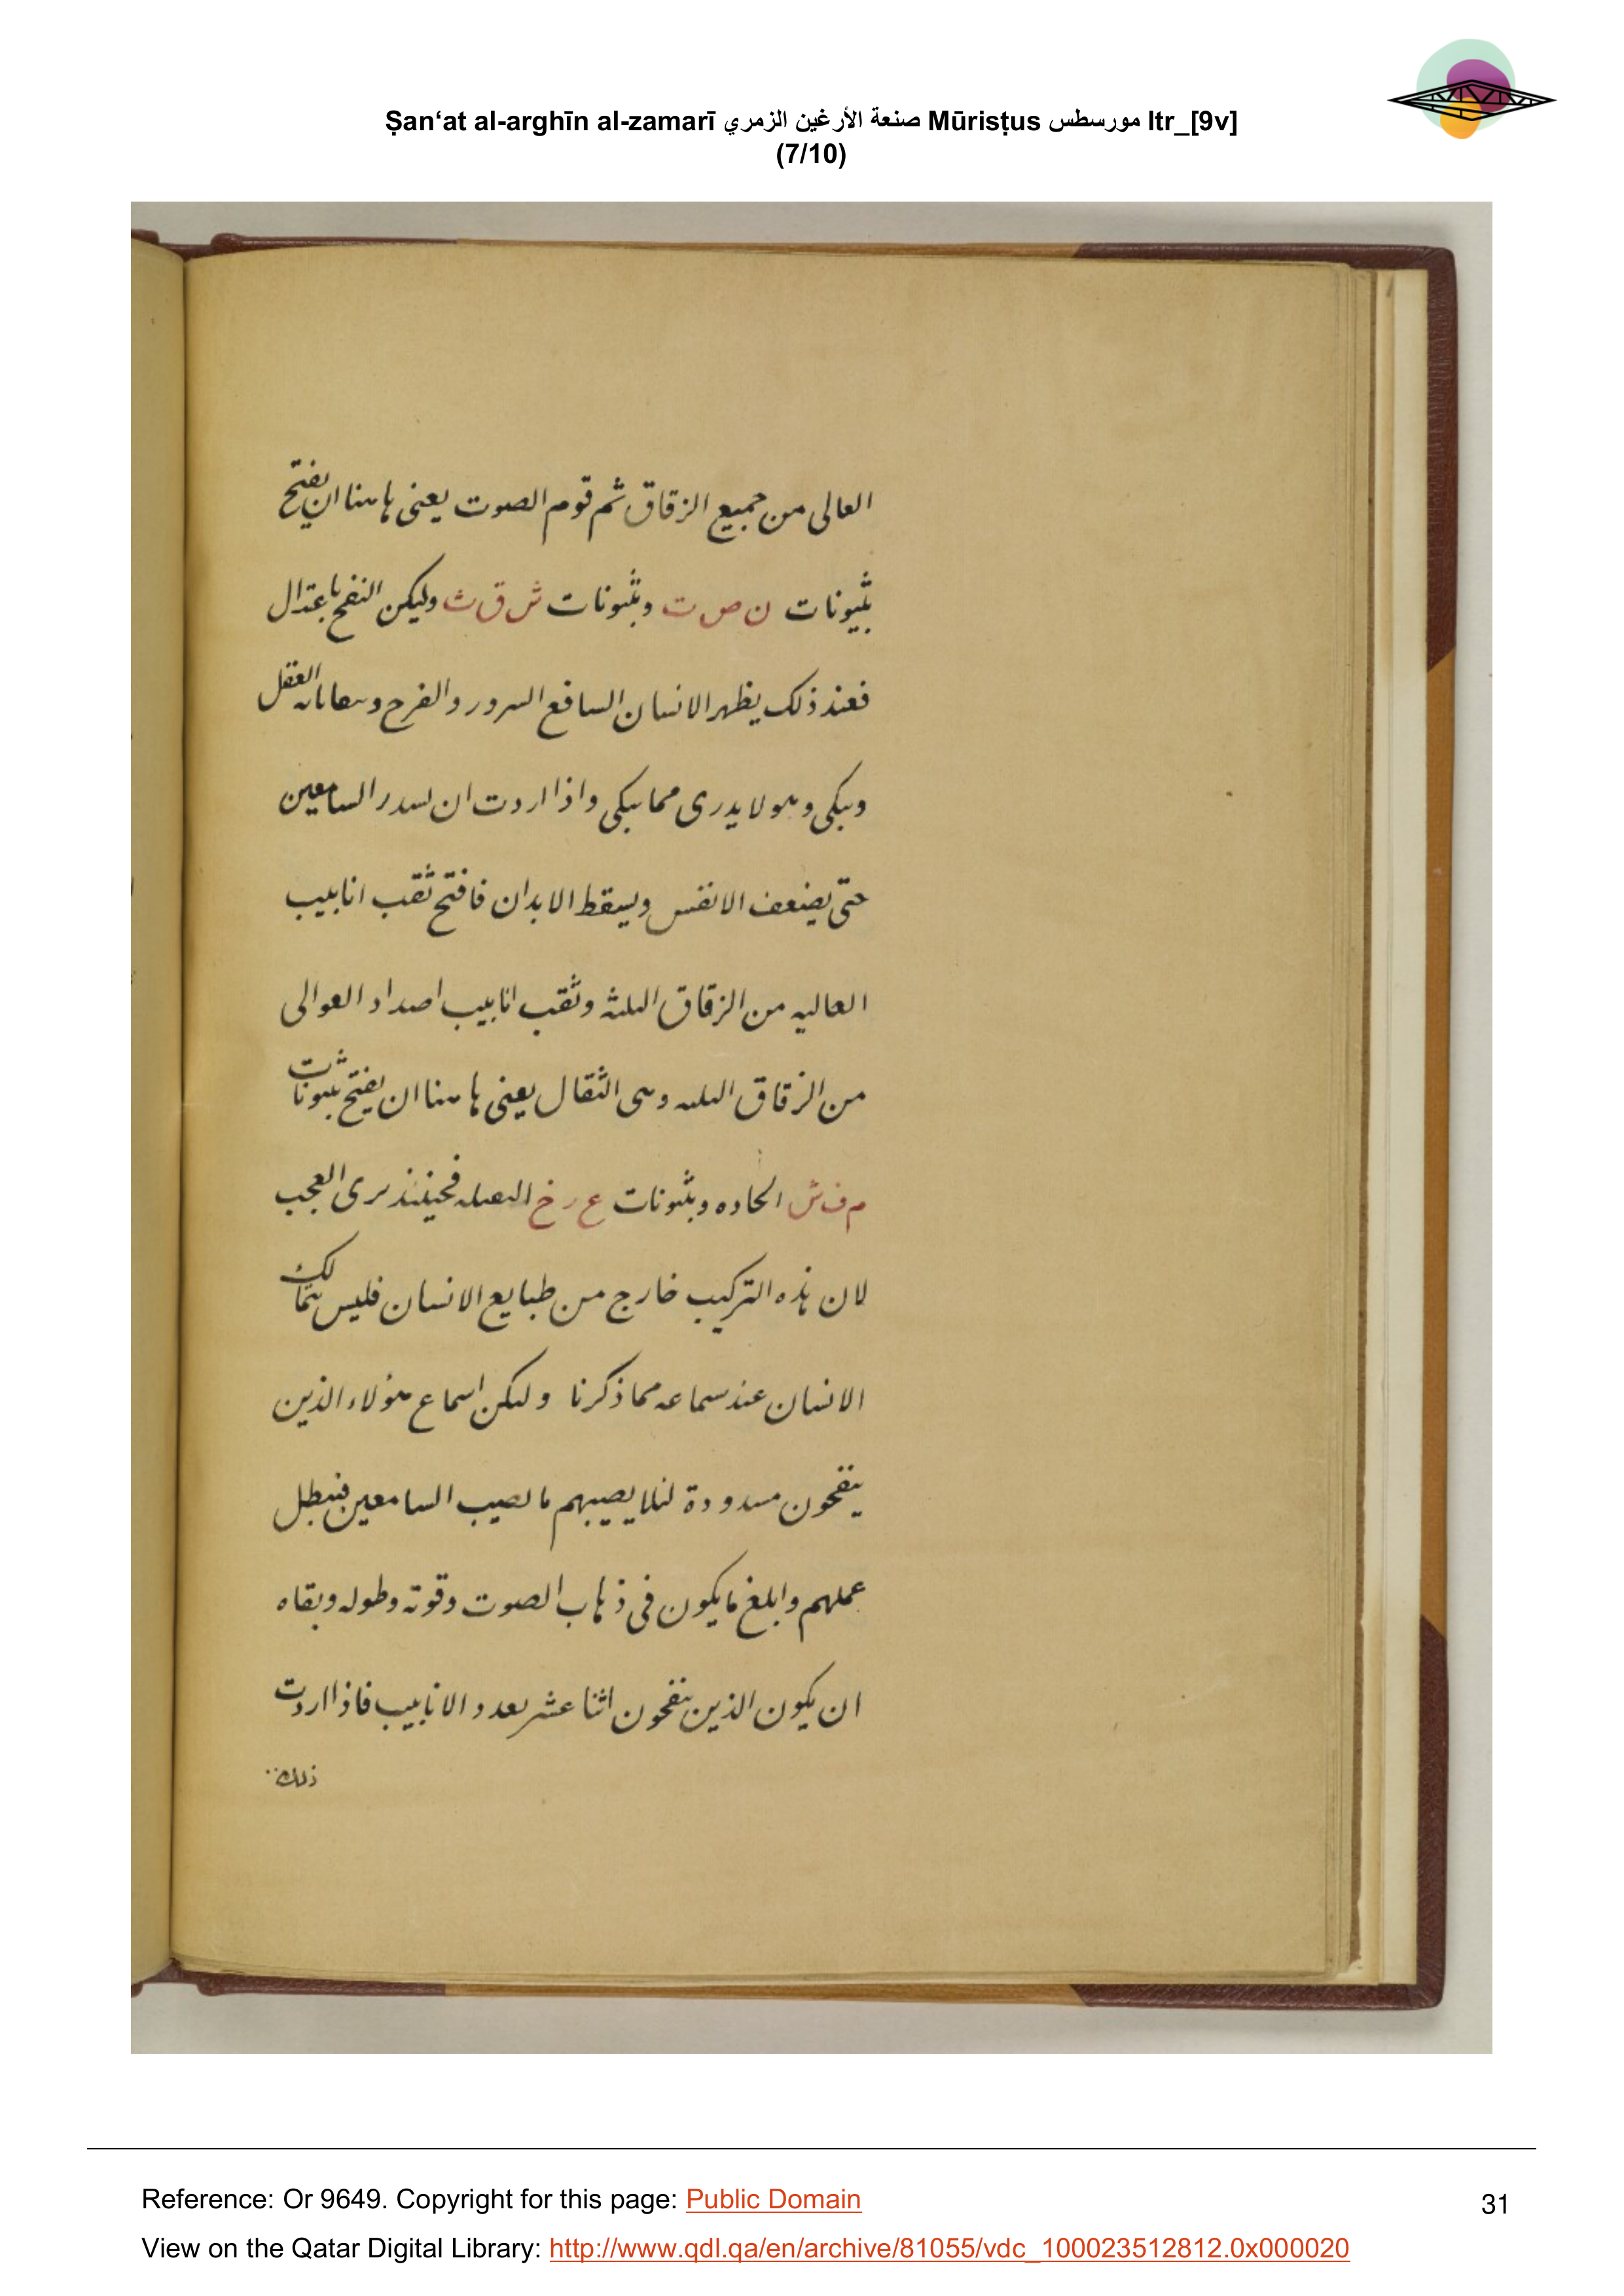 Ṣan‘at al-arghīn al-zamarī صنعة الأرغين الزمري Mūrisṭus مورسطس ltr_[9v]
(7/10)
العالى من جميع الزقاق ثم قوم الصوت يعنى هاهنا ان يفتح
بثيونات ن ص ت وبثيونات ش ق ث وليكن النفخ باعتدال
فعند ذلك يظهر الانسان السافع السرور والفرح العقل
ويبكى وهو لا يدرى مما يبكى واذا اردت ان السامعين
حتى يضعف الانفس ويسقط الابدان فافتح ثقب انابيب
العاليه من الزقاق الثلثة وثقب انابيب اصداد العوالى
من الزقاق الثلثه وهى الثقال يعنى هاهنا ان يفتح بثيونات
م ف ش الحاده وبثيونات ع ر خ الثقيله فحينئذ ترى العجب
لان هذه التركيب خارج من طبايع الانسان فليس يتمالك
الانسان عند سماعه مما ذكرنا وليكن اسماع هؤلاء الذين
ينفخون مسدودة لئلا يصيبهم ما يصيب السامعين فيبطل
عملهم وابلغ ما يكون فى ذهاب الصوت وقوته وطوله وبقاه
ان يكون الذين ينفخون اثنا عشر بعدد الانابيب فاذا اردت
ذلك
Reference: Or 9649. Copyright for this page: Public Domain
31
View on the Qatar Digital Library: http://www.qdl.qa/en/archive/81055/vdc_100023512812.0x000020